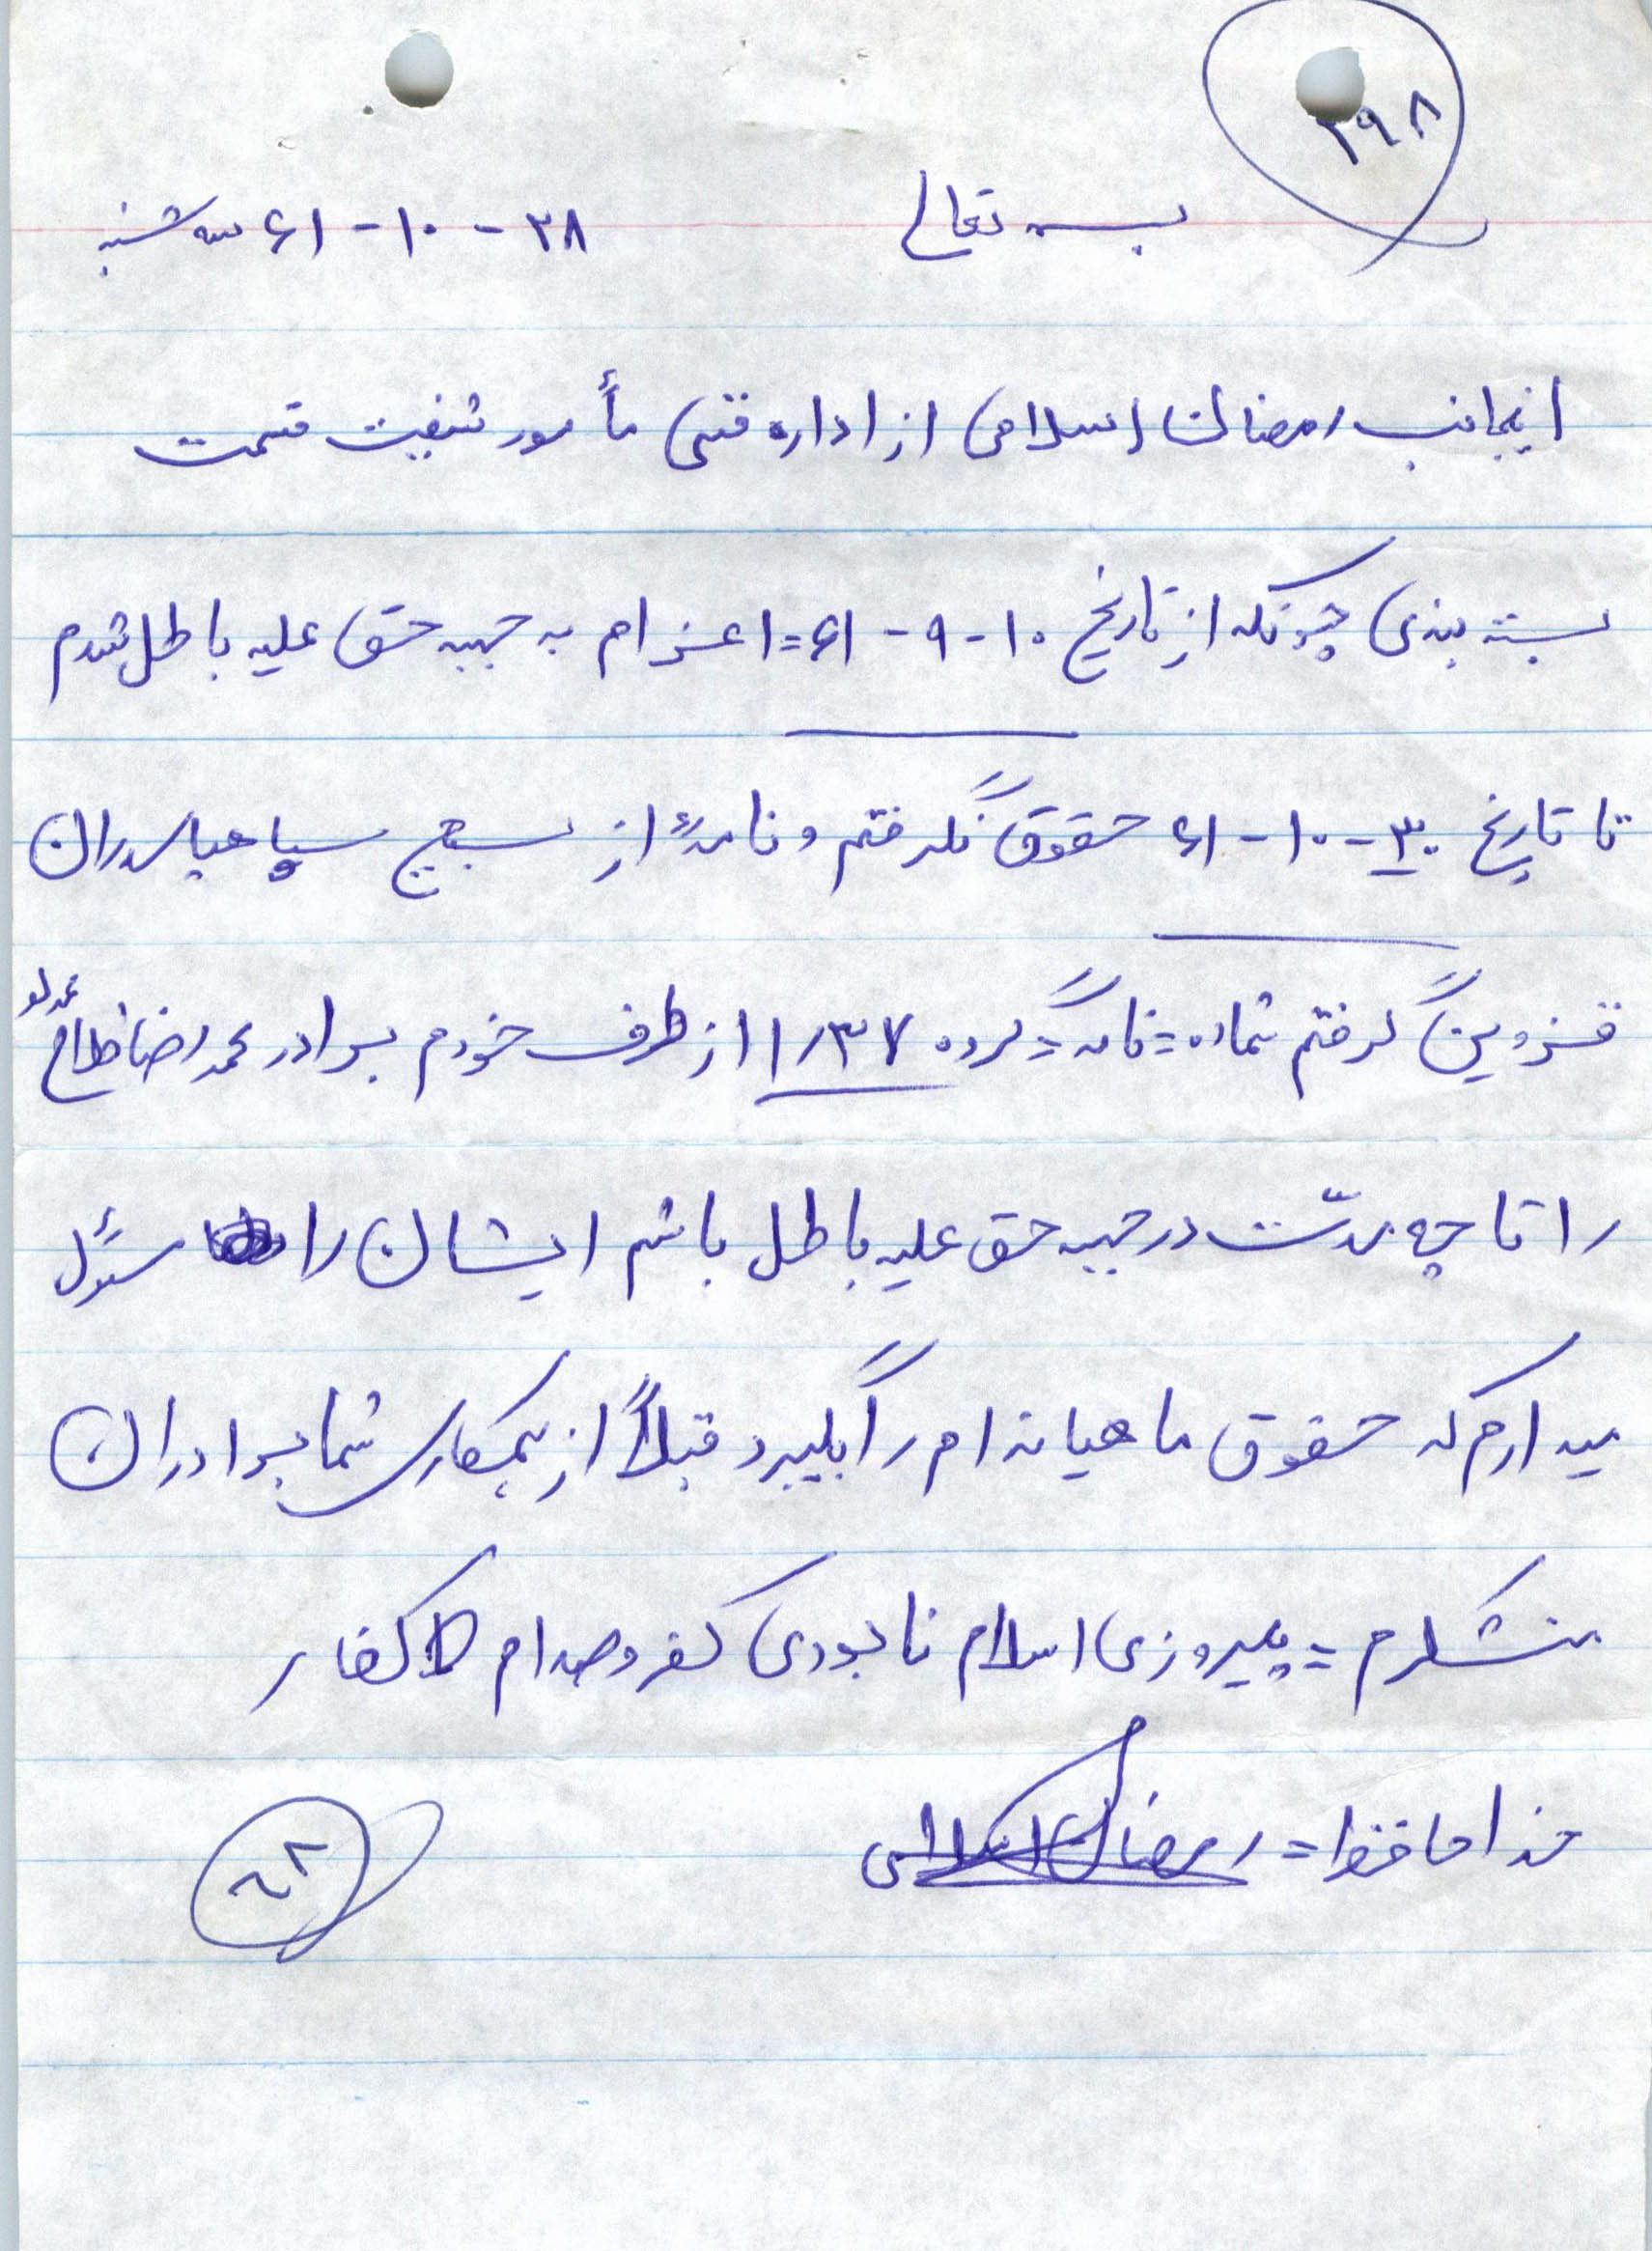 ۲۹۸
بسمه تعالی
۲۸-۱۰-۶۱ سه شنبه
اینجانب رمضان اسلامی از اداره فنی مأمور شیفت قسمت
بسته بندی چونکه از تاریخ ۱۰-۹-۶۱= اعزام به جبهه حق علیه باطل شدم
تا تاریخ ۳۰-۱۰-۶۱ حقوق نگرفتم و نامهٔ از بسیج سپاه پاسداران
قزوین گرفتم شماره = نامه = کرده ۱۱/۳۷ از طرف خودم برادر محمد رضا
را تا چه مدّت در جبهه حق علیه باطل باشم ایشان را مسئول
میدارم که حقوق ماهیانه ام را بگیرد قبلاً از همکاری شما برادران
متشکرم = پیروزی اسلام نابودی کفر و صدام کافر
خدا حافظ = رمضان اسلامی